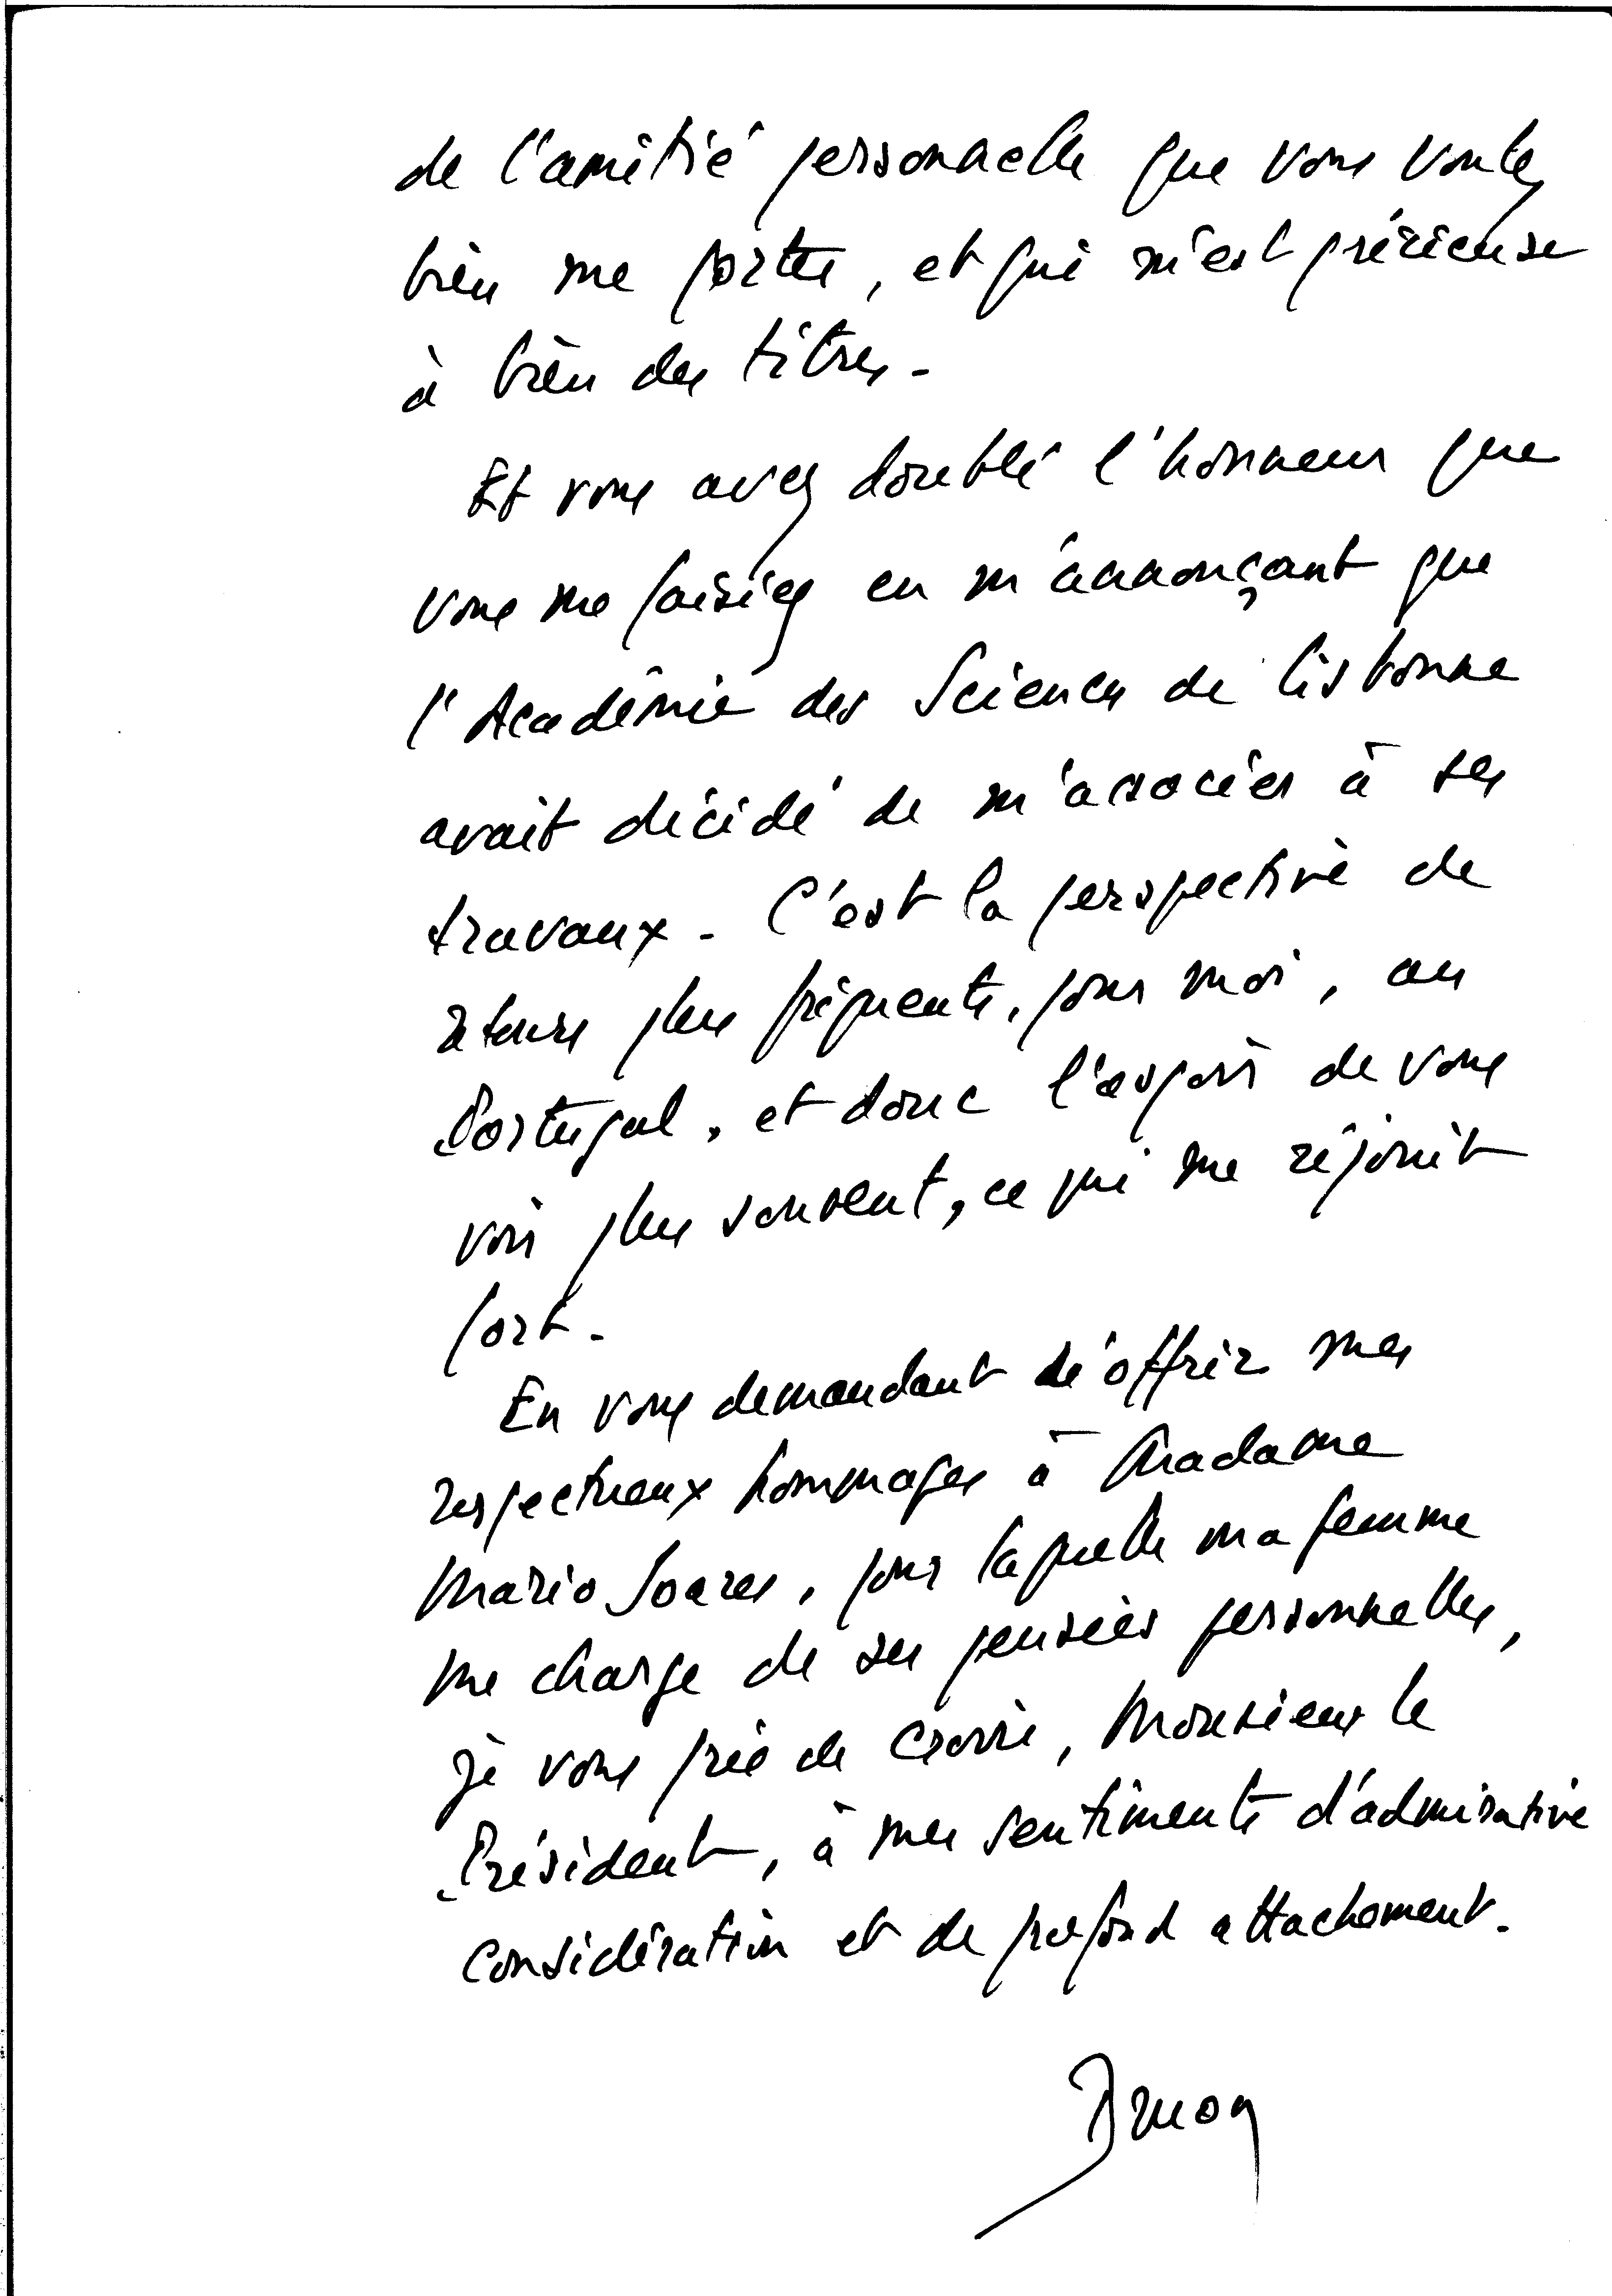 de l'amitié personnelle que vous voulez
bien me porter, et qui m'est précieuse
à bien des titres.
Et vous avez doublé l'honneur que
vous me faisiez en m'annonçant que
l'Académie des Sciences de Lisbonne
avait décidé de m'associer à ses
travaux. C'est la perspective de
retours plus fréquents, pour moi, au
Portugal, et donc l'espoir de vous
voir plus souvent, ce qui me réjouit
fort.
En vous demandant d'offrir mes
respectueux hommages à Madame
Mario Soares, pour laquelle ma femme
me charge de ses pensées personnelles,
je vous prie de croire, Monsieur le
Président, à mes sentiments d'admirative
considération et de profond attachement.
Druon